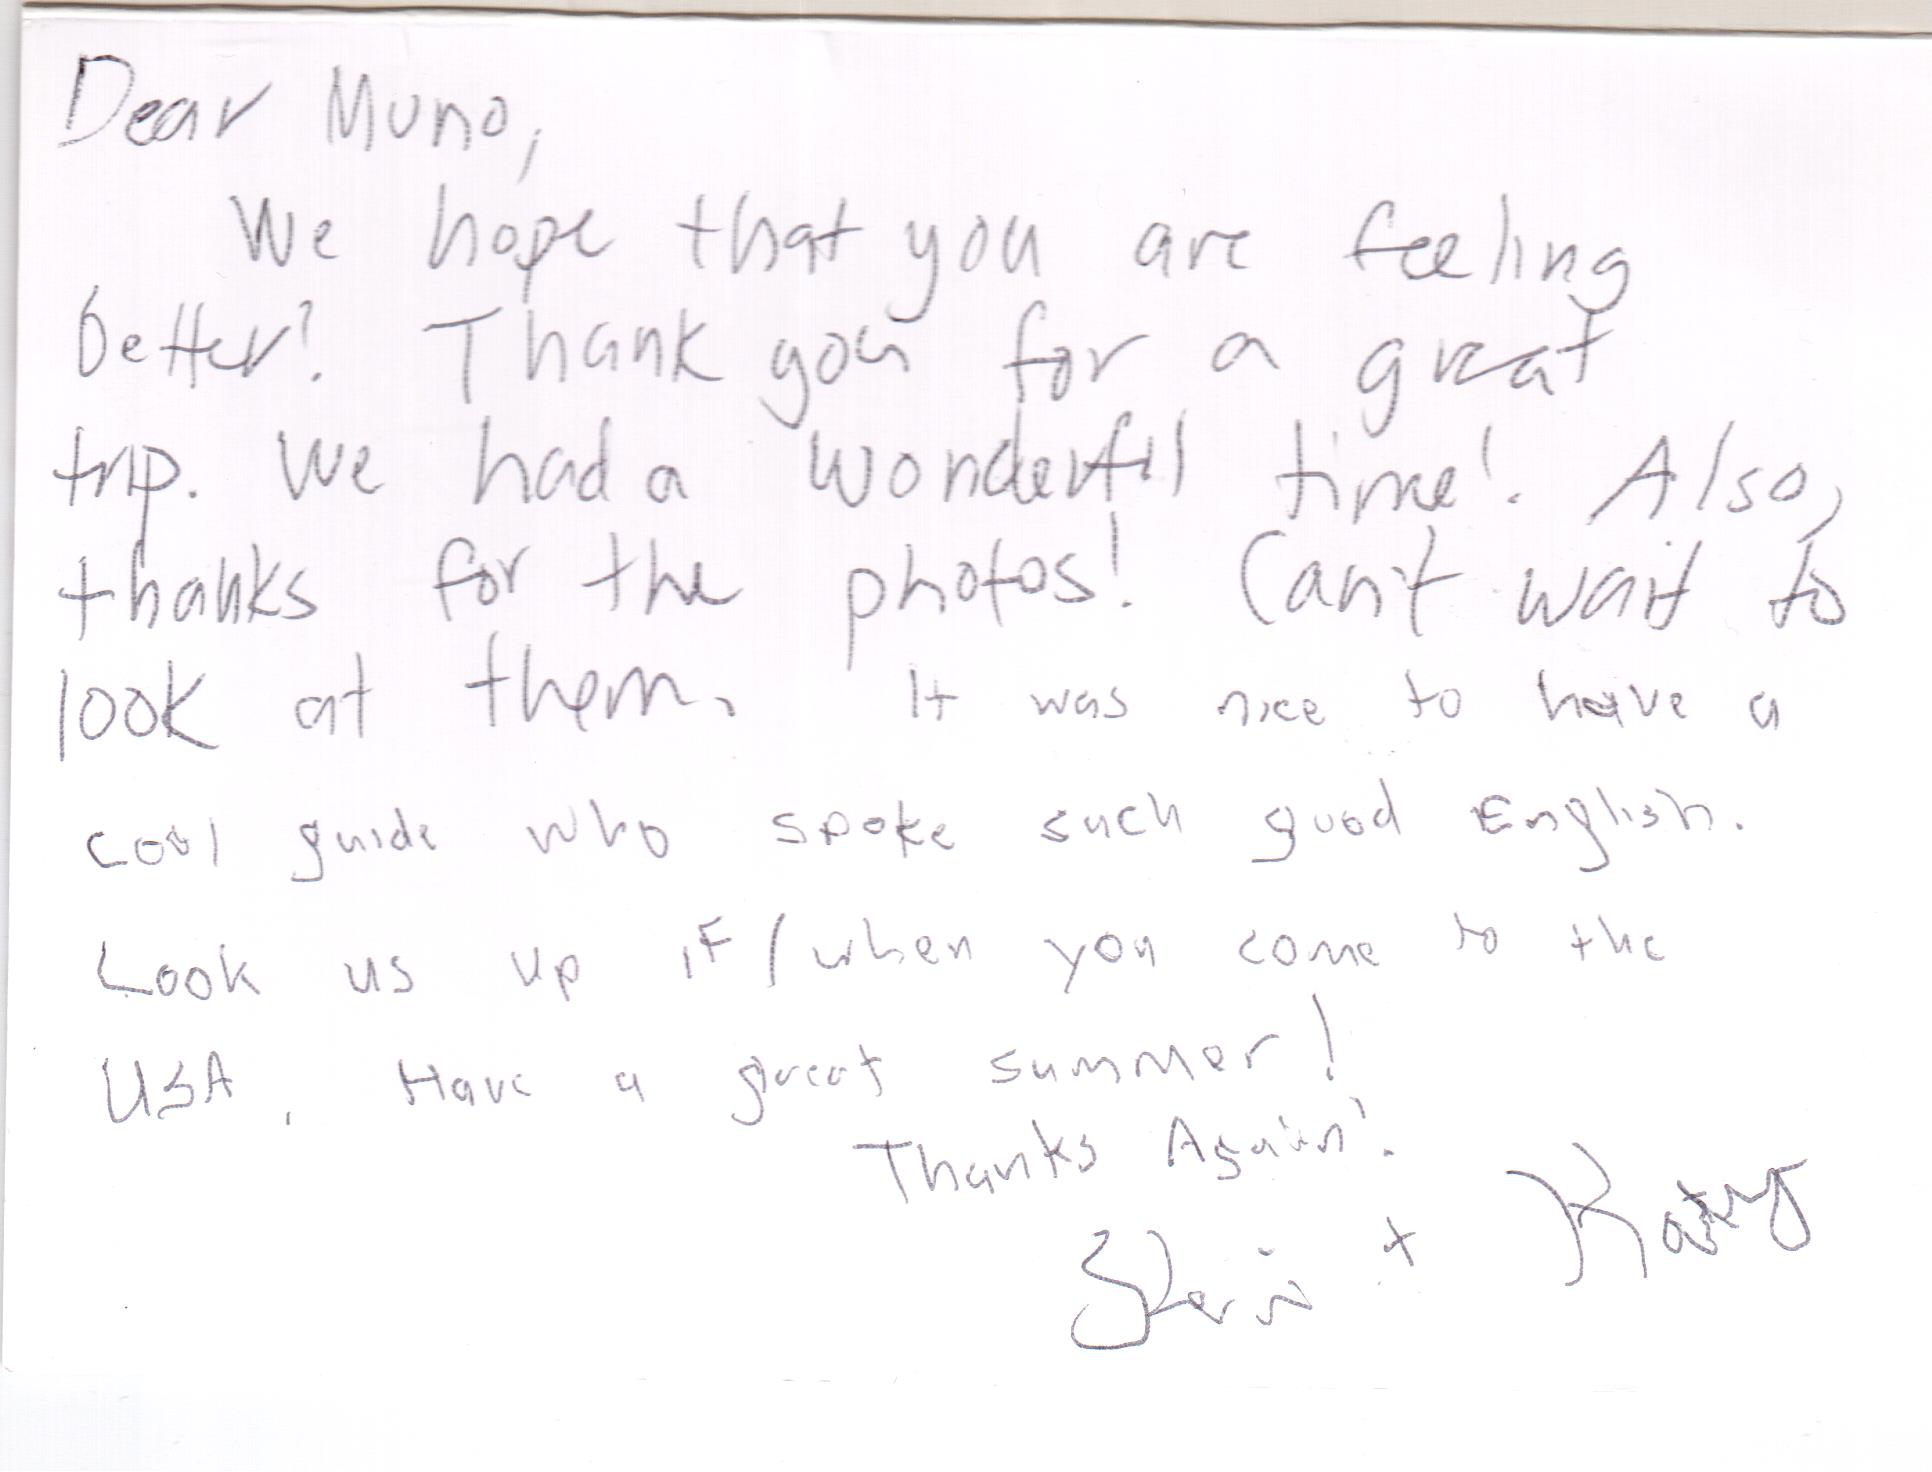 Dear Muno,
We hope that you are feeling
better! Thank you for a great
trip. We had a wonderful time! Also,
thanks for the photos! Can't wait to
look at them. It was nice to have a
cool guide who spoke such good English.
Look us up if/when you come to the
USA. Have a great summer!
Thanks Again!
+ Katy